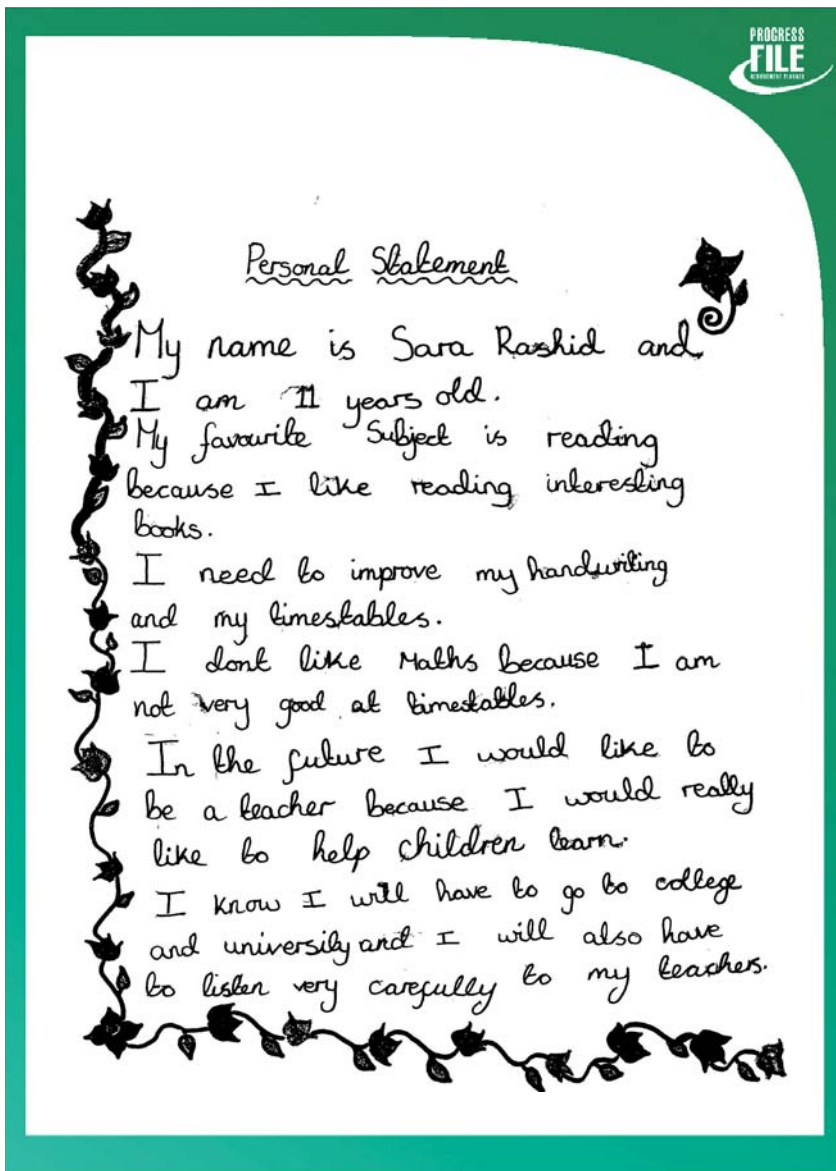 PROGRESS
FILE
ACHIEVEMENT PLANNER
Personal Statement
My name is Sara Rashid and
I am 11 years old.
My favourite Subject is reading
because I like reading interesting
books.
I need to improve my handwriting
and my timestables.
I dont like Maths because I am
not very good at timestables.
In the future I would like to
be a teacher because I would really
like to help children learn.
I know I will have to go to college
and university and I will also have
to listen very carefully to my teachers.